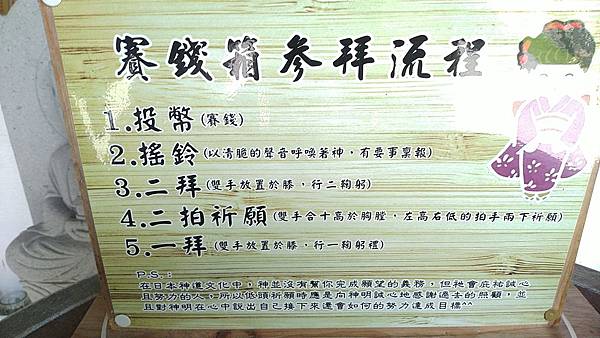 賽錢箱参拜流程
1.投幣(賽錢)
2.搖鈴(以清脆的聲音呼喚著神，有要事稟報)
3.二拜(雙手放置於膝，行二鞠躬)
4.二拍祈願(雙手合十高於胸膛，左高右低的拍手兩下祈願)
5.一拜(雙手放置於膝，行一鞠躬禮)
P.S.：
在日本神道文化中，神並沒有幫你完成願望的義務，但祂會庇祐誠心
且努力的人，所以低頭祈願時應是向神明誠心地感謝過去的照顧，並
且對神明在心中說出自己接下來還會如何的努力達成目標^^